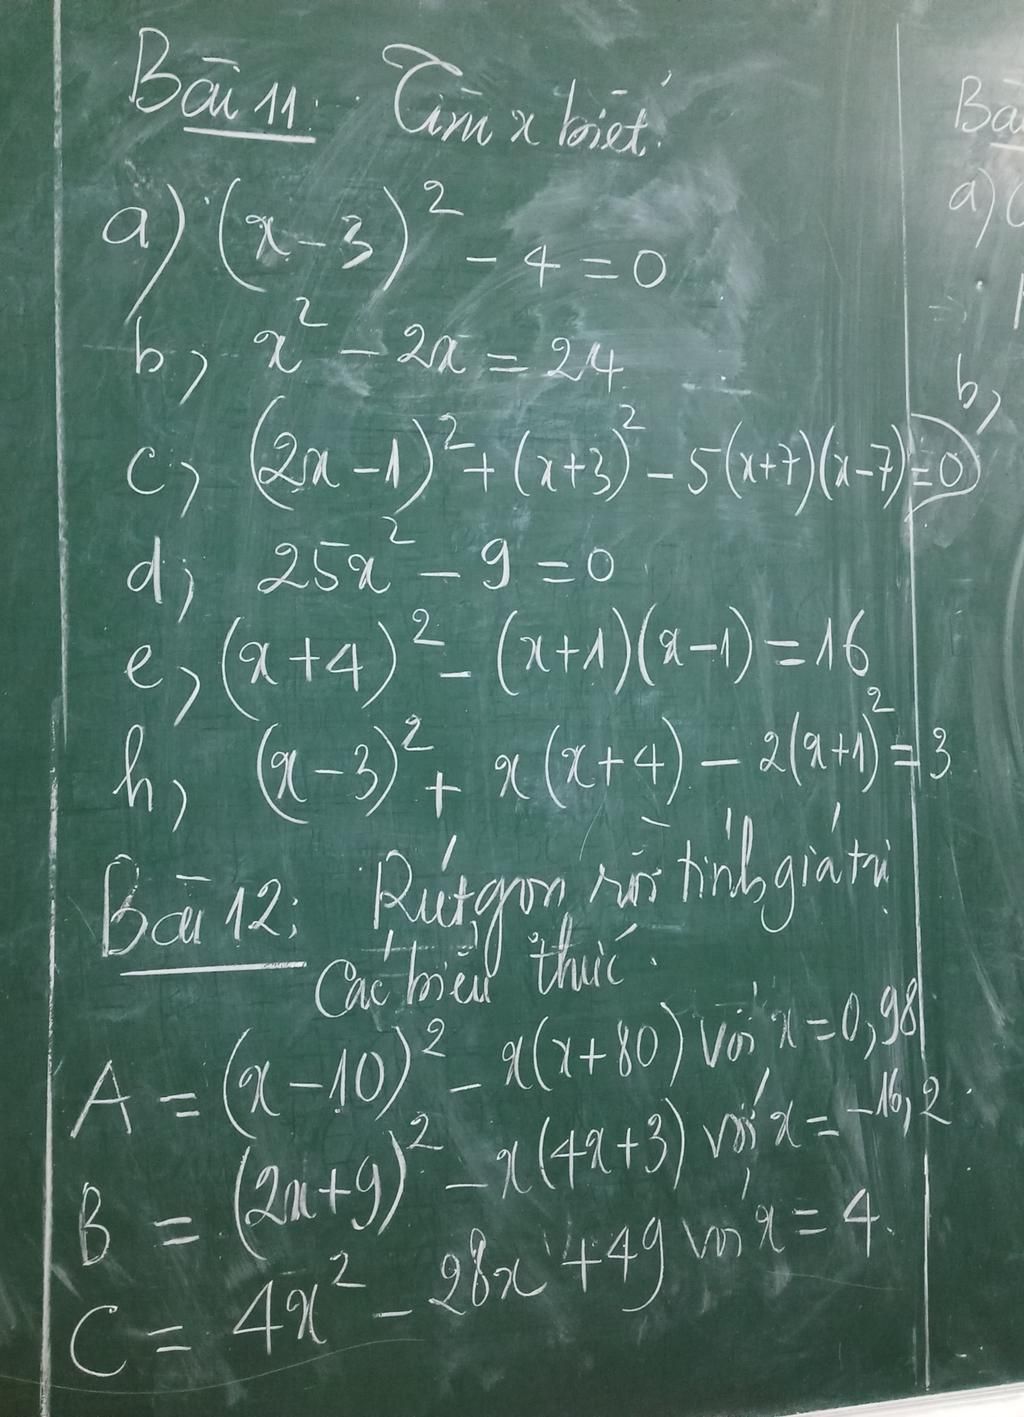 Bài 11: Tìm x biết:
a) (x-3)² - 4 = 0
b, x² - 2x = 24
c, (2x-1)² + (x+3)² - 5(x+7)(x-7) = 0
d, 25x² - 9 = 0
e, (x+4)² - (x+1)(x-1) = 16
h, (x-3)² + x(x+4) - 2(x+1)² = 3
Bài 12: Rút gọn rồi tính giá trị
các biểu thức.
A = (x-10)² - x(x+80) với x = 0,98
B = (2x+9)² - x(4x+3) với x = -16,2
C = 4x² - 28x + 49 với x = 4.
Bà
a) (
b,